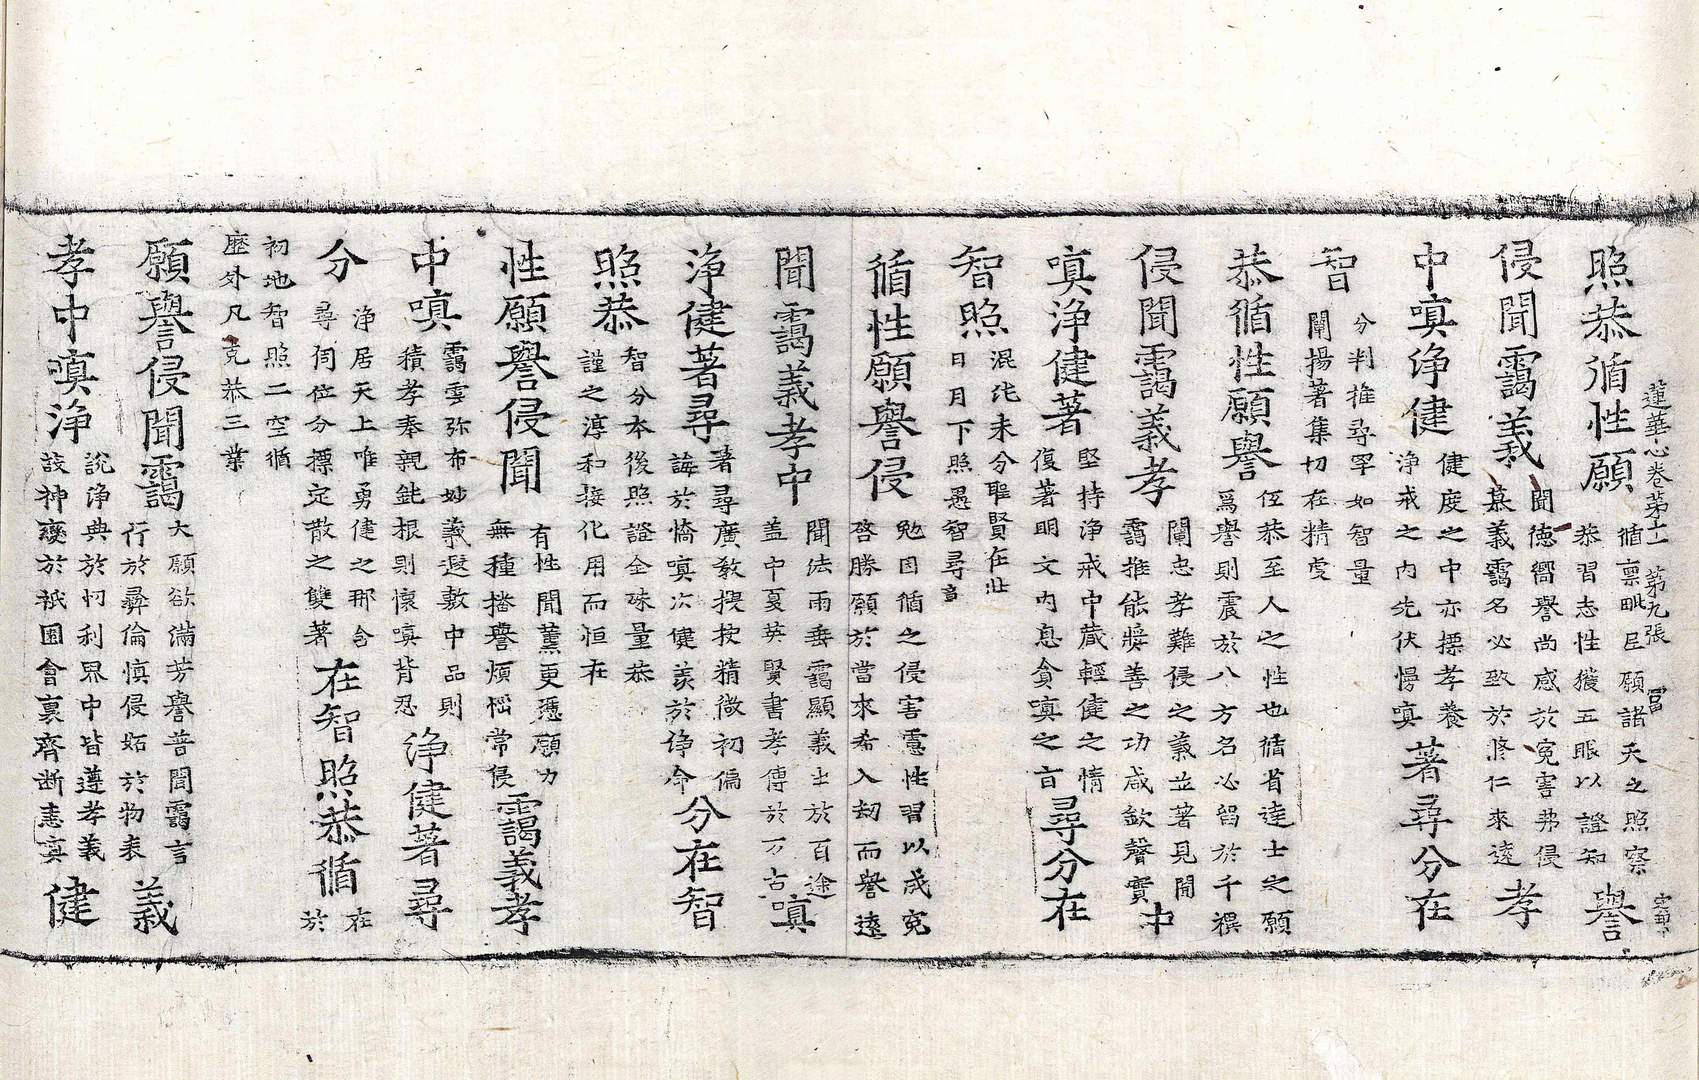 蓮華心卷第十一 第九張
照恭循性願 循禀毗尼願諸天之照察
恭習志性獲五眼以證知 譽
侵聞靄義 聞德嚮譽尚感於冤害弗侵
慕義靄名必致於修仁來遠 孝
中嗔净健 健度之中亦標孝養
净戒之内先伏慢嗔 著尋分在
智 分判推尋罕如智量
闡揚著集切在精虔
恭循性願譽 侄恭至人之性也循省達士之願
爲譽則震於八方名必留於千禩
侵聞靄義孝 闡忠孝難侵之義並著見聞
靄推能奬善之功咸欽聲實 中
嗔净健著 堅持净戒中蕆輕健之情
復著明文内息貪嗔之盲 尋分在
智照 混沌未分聖賢在
日月下照愚智尋
循性願譽侵 勉因循之侵害慁性習以成冤
啓勝願於當來希入劫而譽遠
聞靄義孝中 聞法雨垂靄顯義生於百途
盖中夏英賢書孝傳於万古 嗔
净健著尋 著尋廣教搜按精微初偏
誨於憍嗔次健羨於净命 分在智
照恭 智分本後照證全殊量恭
謹之淳和接化用而恒在
性願譽侵聞 有性聞薰更憑願力
無種播譽煩惱常侵 靄義孝
中嗔 靄雲弥布妙義遐敷中品則
積孝奉親鈍根則懷嗔背忍 净健著尋
分 净居天上唯勇健之那含
尋伺位分標定散之雙著 在智照恭循 在
於
初地智照二空循
歷外凡克恭三業
願譽侵聞靄 大願欲滿芳譽普聞靄言
行於彝倫慎侵妬於物表 義
孝中嗔净 説净典於忉利界中皆遵孝義
設神變於祇園會裏齊断恚嗔 健